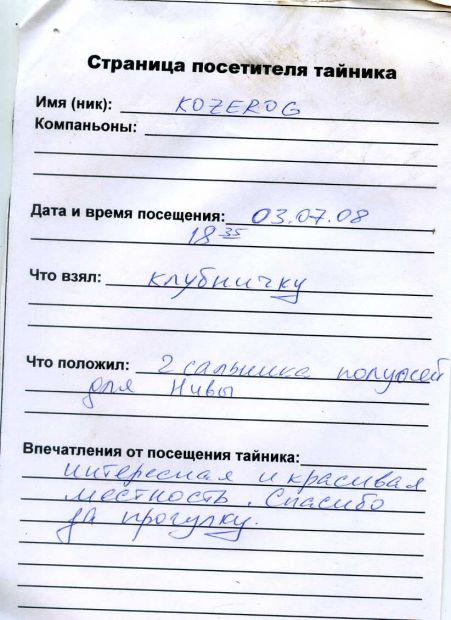 Страница посетителя тайника
Имя (ник): KOZEROG
Компаньоны:
Дата и время посещения: 03.07.08
18 35
Что взял: клубничку
Что положил: 2 сальника полуосей
для Нивы
Впечатления от посещения тайника:
интересная и красивая
местность. Спасибо
за прогулку.